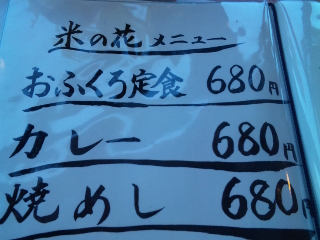 米の花メニュー
おふくろ定食 680円
カレー 680円
焼めし 680円